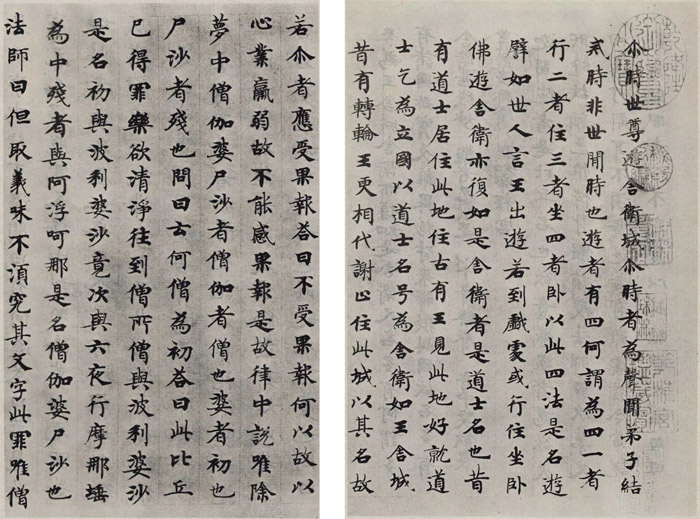 尒時世尊遊舍衛城尒時者為聲聞弟子結
戒時非世聞時也遊者有四何謂為四一者
行二者住三者坐四者卧以此四法是名遊
譬如世人言王出遊若到戲處或行住坐卧
佛遊舍衛亦復如是舍衛者是道士名也昔
有道士居住此地住古有王見此地好就道
士乞為立國以道士名号為舍衛如王舍城
昔有轉輪王更相代謝止住此城以其名故
若尒者應受果報荅曰不受果報何以故以
心業羸弱故不能感果報是故律中說唯除
夢中僧伽婆尸沙者僧伽者僧也婆者初也
尸沙者殘也問曰云何僧為初荅曰此比丘
已得罪樂欲清淨往到僧所僧與波利婆沙
是名初與波利婆沙竟次與六夜行摩那埵
為中殘者與阿浮呵那是名僧伽婆尸沙也
法師曰但取義味不湏究其文字此罪唯僧